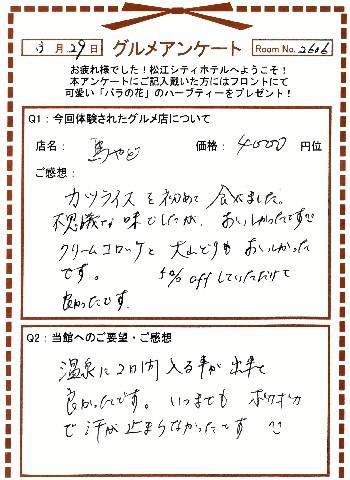 3月29日 グルメアンケート Room No. 2606
お疲れ様でした！松江シティホテルへようこそ！
本アンケートにご記入戴いた方にはフロントにて
可愛い「バラの花」のハーブティーをプレゼント！
Q1：今回体験されたグルメ店について
店名： 馬やど 価格： 4000 円位
ご感想：
カツライスを初めて食べました。
不思議な味でしたが、おいしかったです
クリームコロッケと大山どりもおいしかった
です。 5% offしていただけて
良かったです。
Q2：当館へのご要望・ご感想
温泉に2日間入る事が出来て
良かったです。いつまでもポカポカ
で汗が止まらなかったです